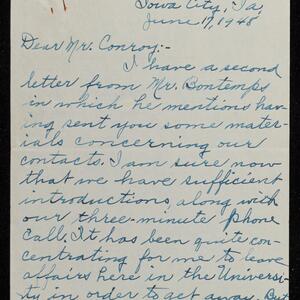 Iowa City, Ia,
June 17, 1948
Dear Mr. Conroy:-
I have a second
letter from Mr. Bontemps
in which he mentions hav-
ing sent you some mater-
ials concerning our
contacts. I am sure now
that we have sufficient
introductions, along with
our three-minute phone
call. It has been quite con-
centrating for me to leave
affairs here in the Universi-
ty in order to get away. But